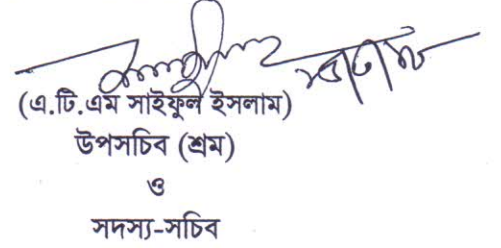 (এ.টি.এম সাইফুল ইসলাম)
উপসচিব (শ্রম)
ও
সদস্য-সচিব